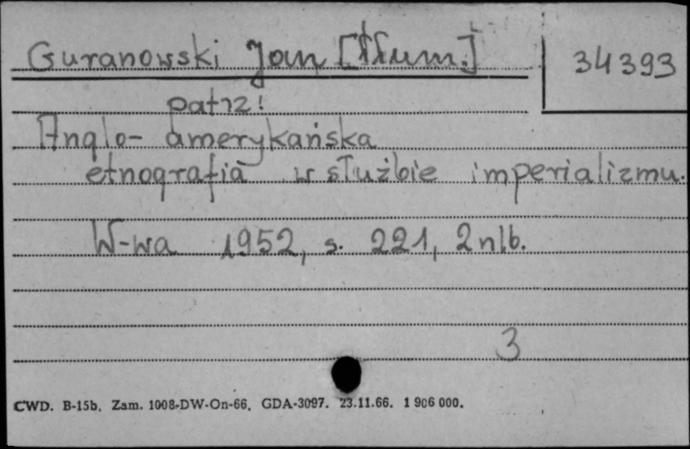 Guranowski Jan [tłum.] 34393
patrz!
Anglo-amerykańska
etnografia w służbie imperializmu.
W-wa 1952, s. 221, 2 nlb.
3
CWD. B-15b. Zam. 1008-DW-On-66. GDA-3097. 23.11.66. 1 906 000.